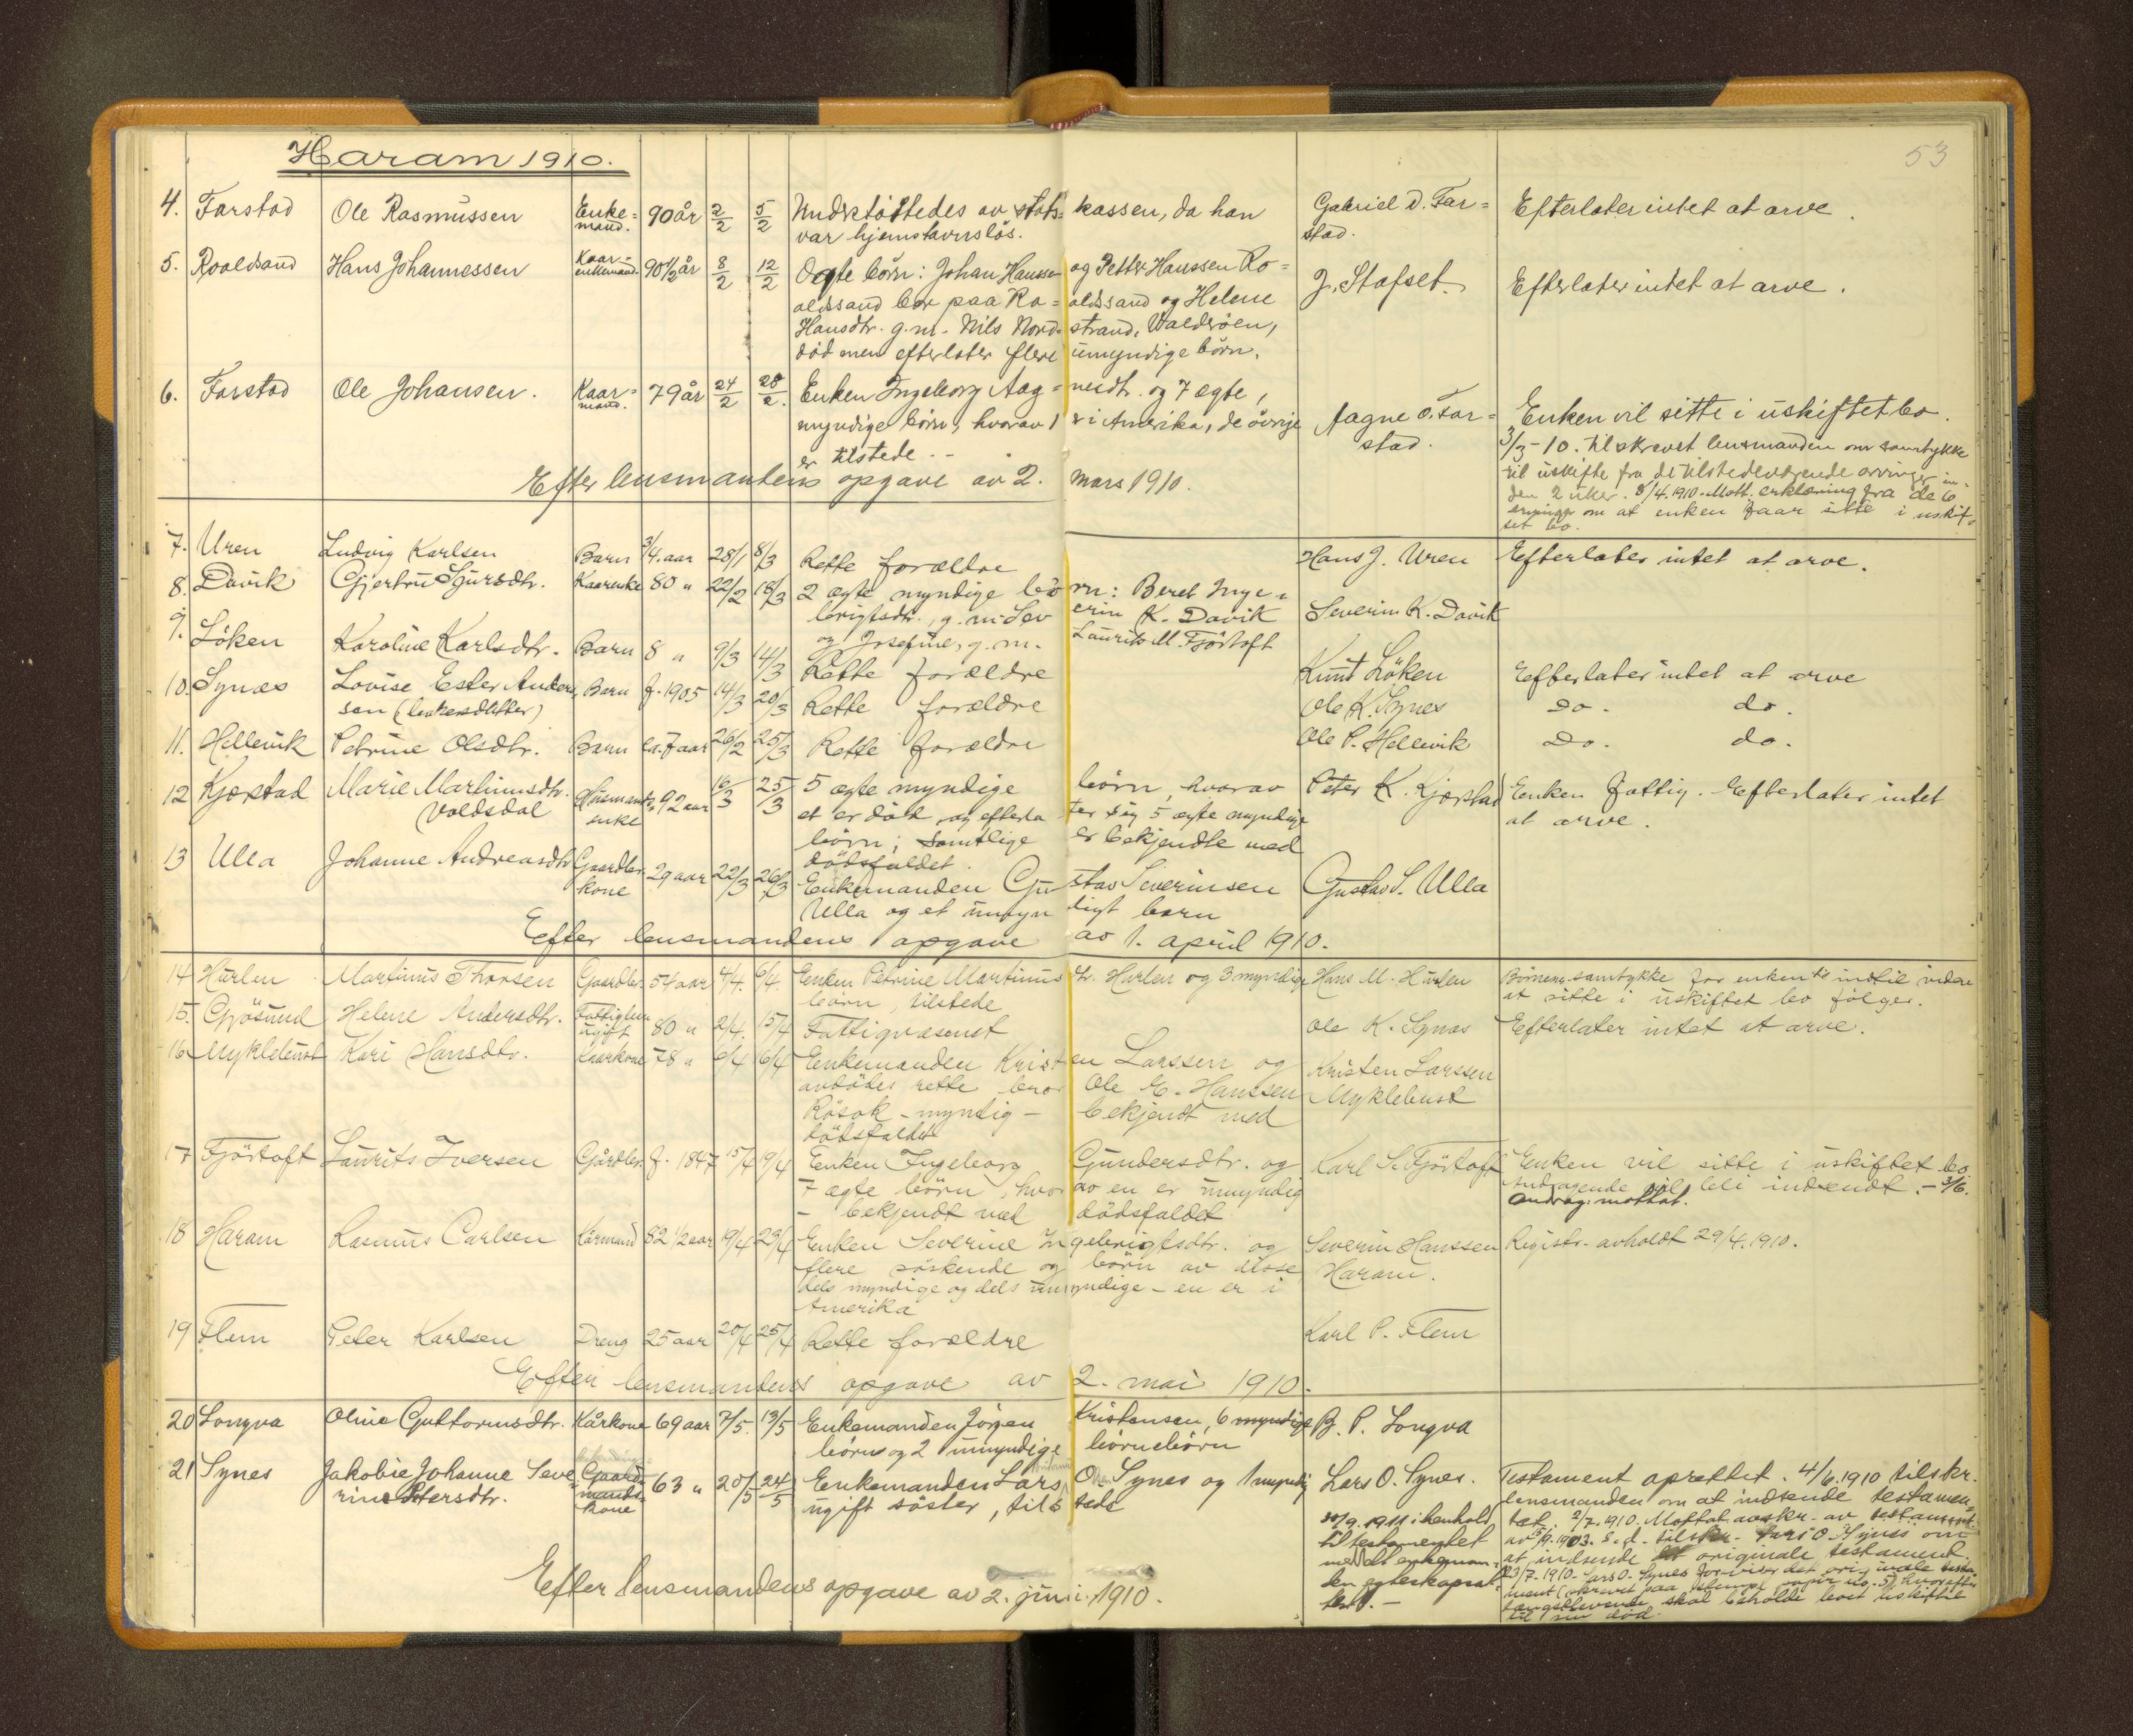 Haram 1910.
53
4. Farstad Ole Rasmussen Enke= mand. 90 år 2/2 5/2 Understøttedes av stats= kassen, da han Gabriel D. Far= Efterlater intet at arve.
var hjemstavnsløs. stad.
5. Roaldsand Hans Johannessen Kaar= enkemand 90 1/2 år 8/2 12/2 3 ægte børn: Johan Hanssen og Petter Hanssen Ro= J. Stafset. Efterlater intet at arve.
aldssand bor paa Ro= aldssand og Helene
Hansdtr. g.m. Nils Nord= strand, Valderøen,
død men efterlater flere umyndige børn.
6. Farstad Ole Johansen. Kaar= mand. 79 år 24/2 28/2. Enken Ingeborg Aag= nesdtr. og 7 ægte, Aagne O. Far= Enken vil sitte i uskiftet bo.
myndige børn, hvorav 1 er i Amerika, de øvrige stad. 3/3-10. Tilskrevet lensmanden om samtykke
er tilstede. - til uskifte fra de tilstedeværende arvinger in-
Efter lensmandens opgave av 2. mars 1910. den 2 uker. 8/4.1910. Mott. erklæring fra de 6
arvinger om at enken faar sitte i uskif-
tet bo.
7. Uren Ludvig Karlsen Barn 3/4 aar 28/1 8/3 Rette forældre Hans J. Uren Efterlater intet at arve.
8. Davik Gjertru Sjursdtr. Kaarenke 80 " 22/2 18/3 2 ægte myndige børn: Beret Inge- Severin K. Davik
brigtsdtr., g.m. Severin K. Davik
og Josefine, g.m. Laurits M. Fjørtoft
9. Løken Karoline Karlsdtr. Barn 8 " 9/3 14/3 Rette forældre Knut Løken Efterlater intet at arve
10. Synæs Lovise Ester Ander= Barn f. 1905 14/3 20/3 Rette forældre Ole K. Synes Do. do.
sen
11. Hellevik Petrine Olsdtr. Barn ca. 7 aar 26/2 25/3 Rette forældre Ole P. Hellevik Do. do.
12 Kjærstad Marie Martinusdtr. Husmands 92 aar 16/3 25/3 5 ægte myndige børn, hvorav Peter K. Kjærstad Enken fattig. Efterlater intet
Voldsdal enke et er død og efterla ter sig 5 ægte myndige at arve.
børn; samtlige er bekjendte med
dødsfaldet.
13 Ulla Johanne Andreasdtr. Gaardbr. kone 29 aar 22/3 26/3 Enkemanden Gustav Severinsen Gustav S. Ulla
Ulla og et umyndigt barn
Efter lensmandens opgave av 1. april 1910.
14 Hurlen Martinus Thorsen Gaardbr. 54 aar 4/4. 6/4. Enken Petrine Martinusdtr. Hurlen og 3 myndige Hans M. Hurlen Børnenes samtykke for enken til indtil videre
børn, tilstede at sitte i uskiftet bo følger.
15. Gjøsund Helene Andersdtr. Fattiglem ugift 80 " 2/4. 15/4 Fattigvæsenet Ole K. Synæs Efterlater intet at arve.
16 Myklebust Kari Hansdtr. Kaarkone 78 " 6/4 16/4 Enkemanden Kristen Larssen og Kristen Larssen
avdødes rette bror Ole E. Hanssen Myklebust
Røsok - myndig - bekjendt med
dødsfaldet
17 Fjørtoft Laurits Iversen Gårdbr. f. 1847 15/4 19/4 Enken Ingeborg Gundersdtr. og Karl S. Fjørtoft Enken vil sitte i uskiftet bo
7 ægte børn, hvorav en er umyndig Andragende vil bli indsendt. - 3/6.
- bekjendt med dødsfaldet andrag. mottat.
18 Haram Rasmus Carlsen Kårmand 82 1/2 aar 19/4 23/4 Enken Severine Ingebrigtsdtr. og Severin Hanssen Registr. avholdt 29/4.1910.
flere søskende og børn av disse, Haram.
dels myndige og dels umyndige - en er i
Amerika
19 Flem Peter Karlsen Dreng 25 aar 20/4 25/4 Rette forældre Karl P. Flem
Efter lensmandens opgave av 2. mai 1910.
20 Longva Oline Guttormsdtr. Kårkone 69 aar 7/5. 13/5 Enkemanden Jørgen Kristensen, 6 myndige B. P. Longva
børn og 2 umyndige børnebørn
21 Synes Jakobie Johanne Seve= Gaard= mands= kone 63 " 20/5 24/5 Enkemanden Lars O. Synes og 1 myndig Lars O. Synes. Testament oprettet. 4/6.1910 tilskr.
rine Petersdtr. ugift søster, tilstede lensmanden om at indsende testamen=
30/9.1911 i henhold tet. 2/7.1910. Mottat avskr. av testament
til testamentet av 15/9.1903. S.d. tilskr. Lars O. Synes om
meddelt enkeman= at indsende originale testament.
den egteskapsat= 23/7.1910. Lars O. Synes forviser det originale testa=
test. - ment (skrevet paa stempl. papir no. 5), hvorefter
længstlevende skal beholde boet uskiftet
til sin død.
Efter lensmandens opgave av 2. juni 1910.